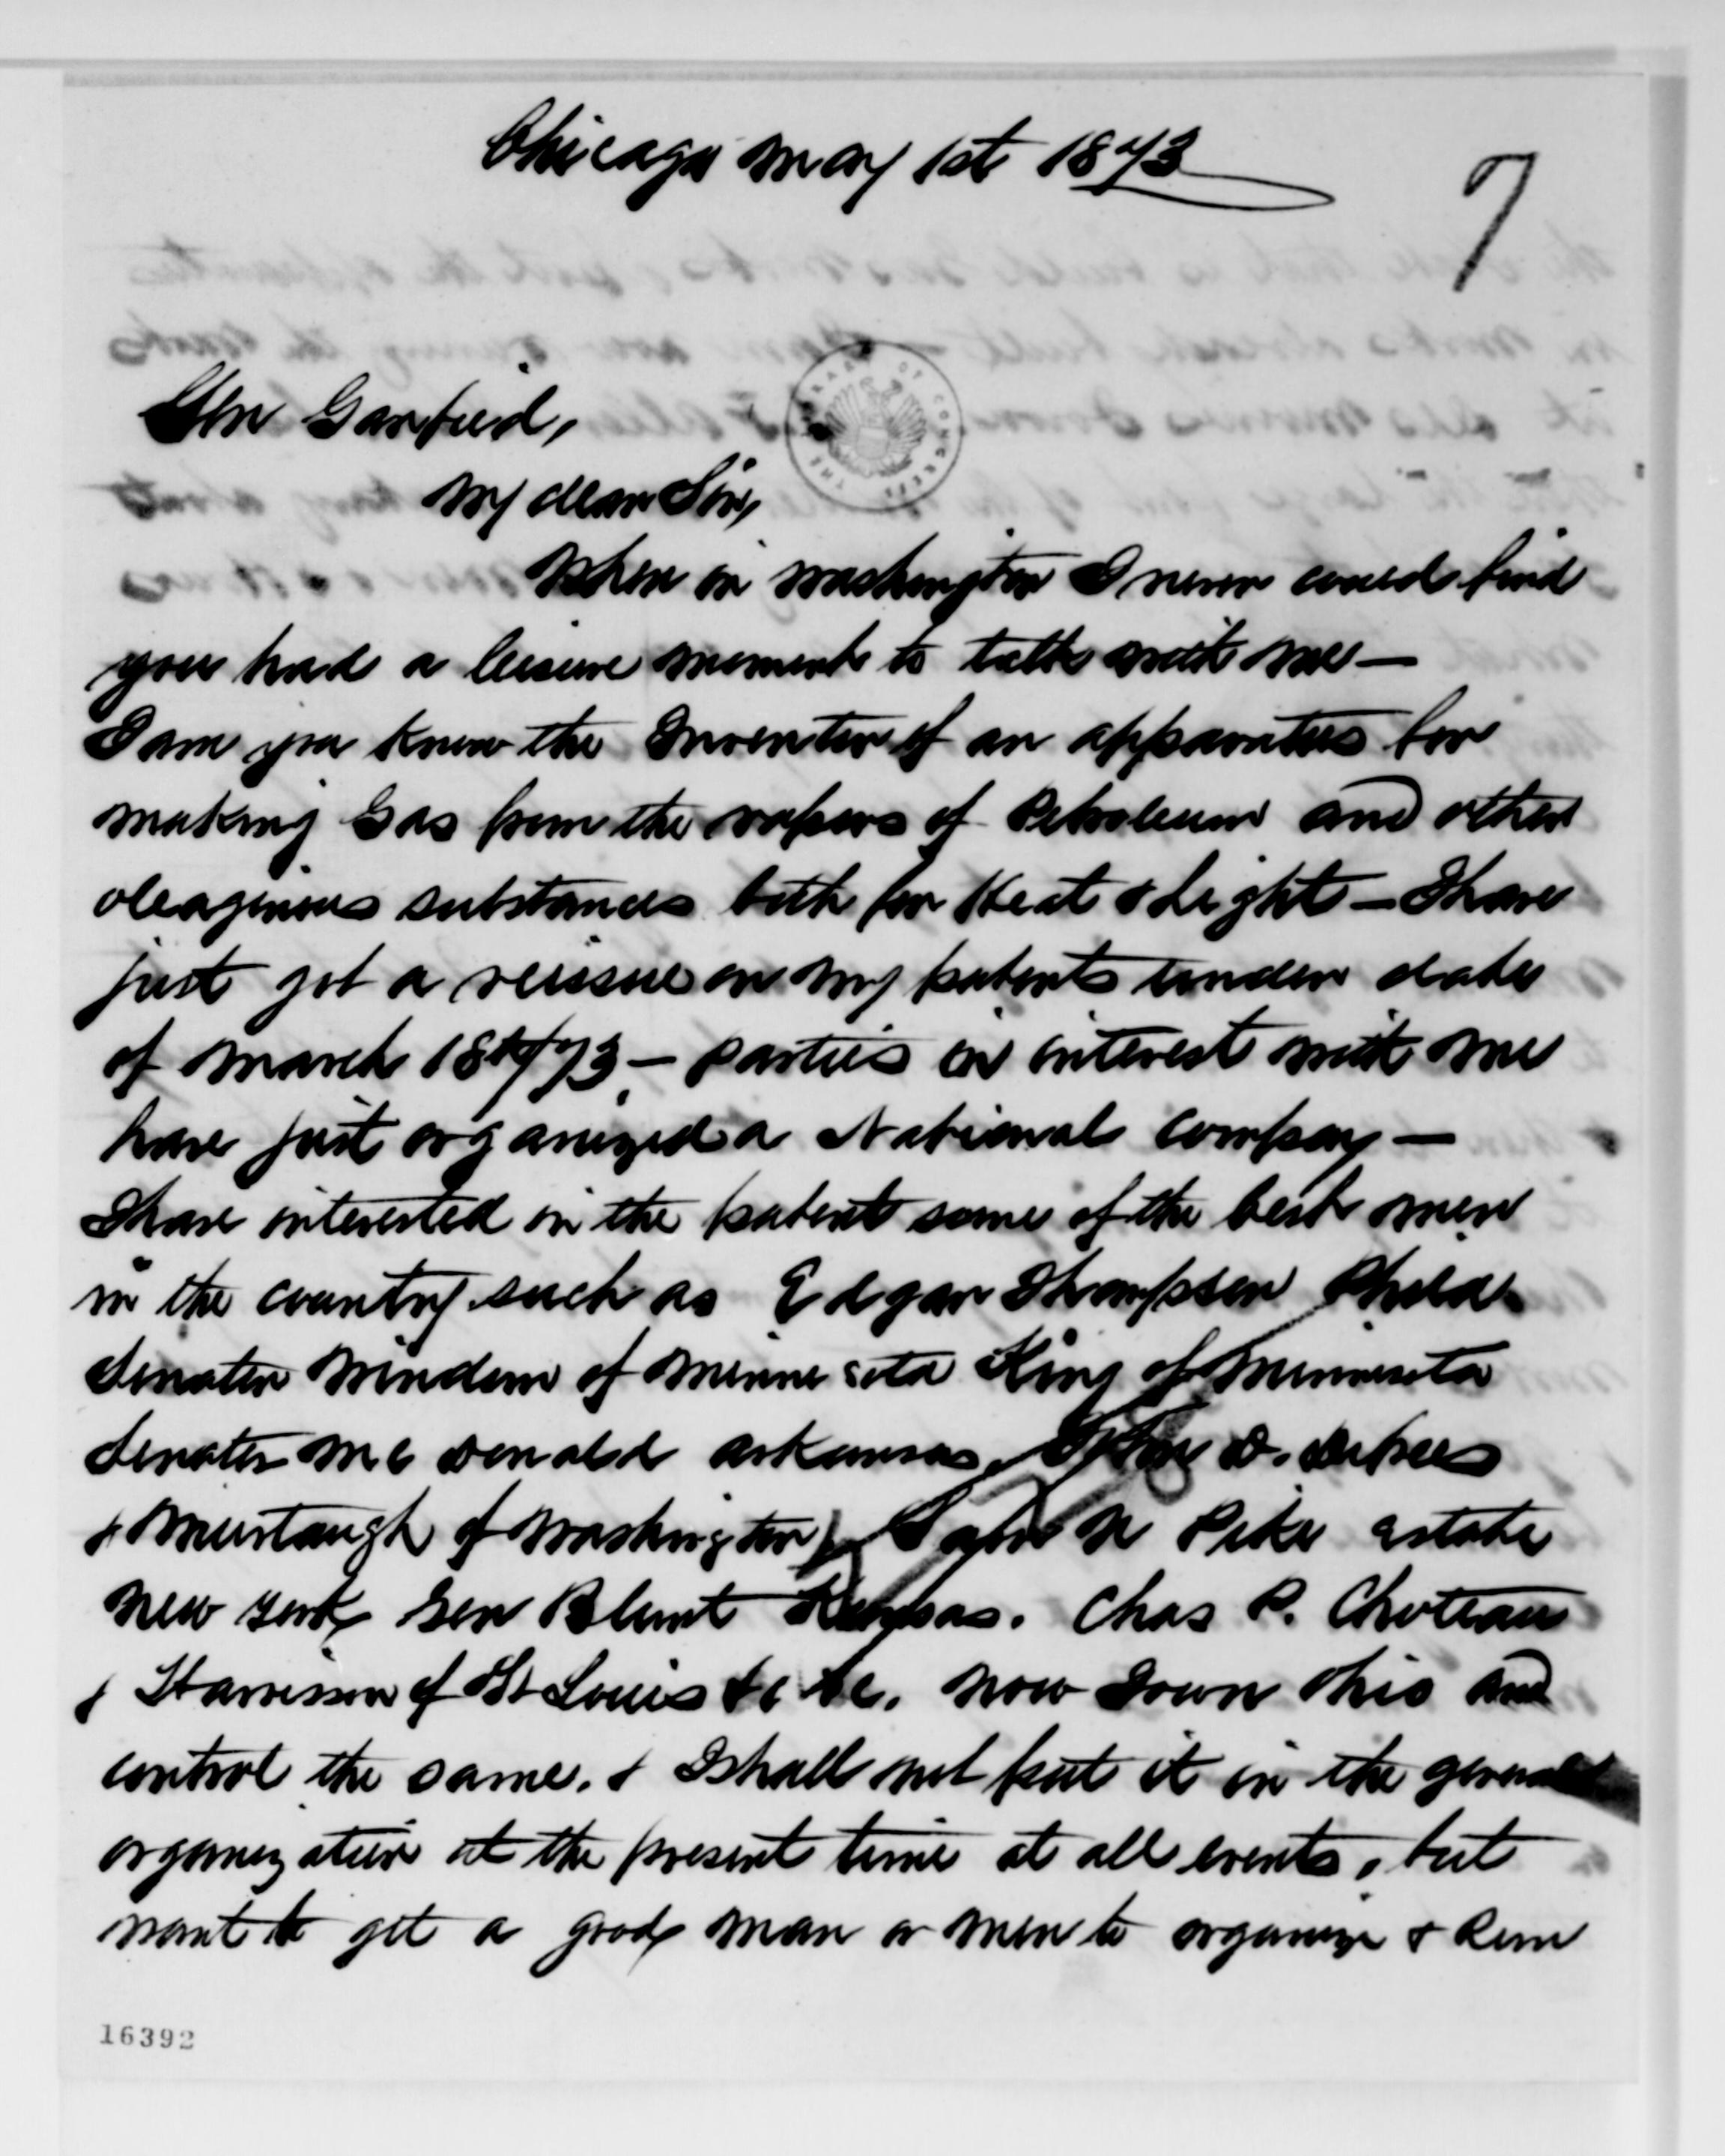 Chicago May 1st 1873
7
Gen Garfield,
My dear Sir,
When in Washington I never could find
you had a leisure moment to talk with me —
I am you know the Inventor of an apparatus for
making Gas from the vapors of Petroleum and other
oleaginous substances both for Heat & Light — I have
just got a reissue on my patents under date
of March 18th/73 — parties in interest with me
have just organized a National Company —
I have interested in the patent some of the best men
in the country such as Edgar Thompson Phila
Senator Windom of Minnesota King of Minnesota
Senator McDonald Arkansas. John D. Defrees
& Murtaugh of Washington, N Pike Estate
New York Gen Blunt Kansas. Chas P. Choteau
& Harrison of St Louis &c &c. Now I own Ohio and
control the same. & I shall not put it in the general
organization at the present time at all events, but
want to get a good man or men to organize & Run
THE LIBRARY OF CONGRESS
16392